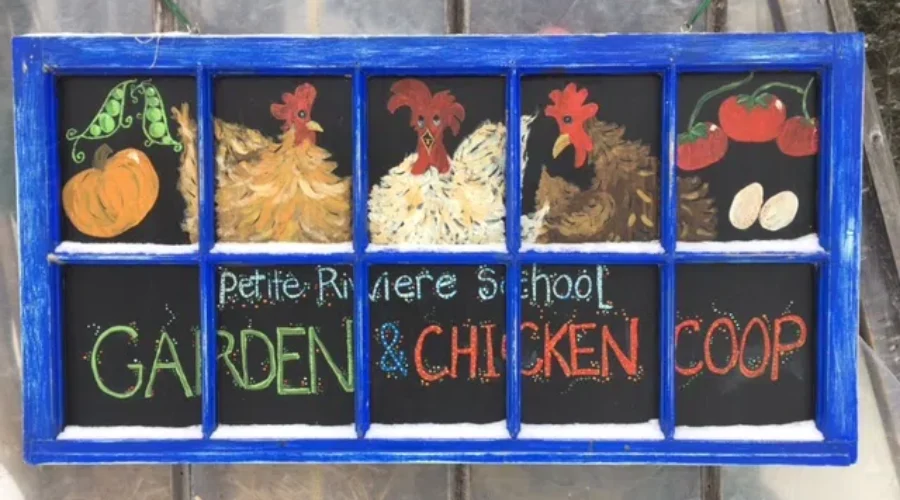 Petite Riviere School
GARDEN & CHICKEN COOP